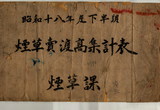 昭和十八年度下半期
煙草賣渡高集計表
煙草課